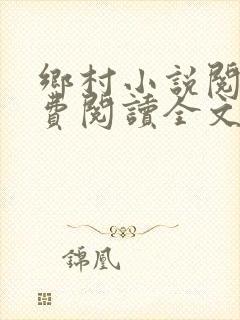 鄉村小説閱
費閱讀全文
錦凰